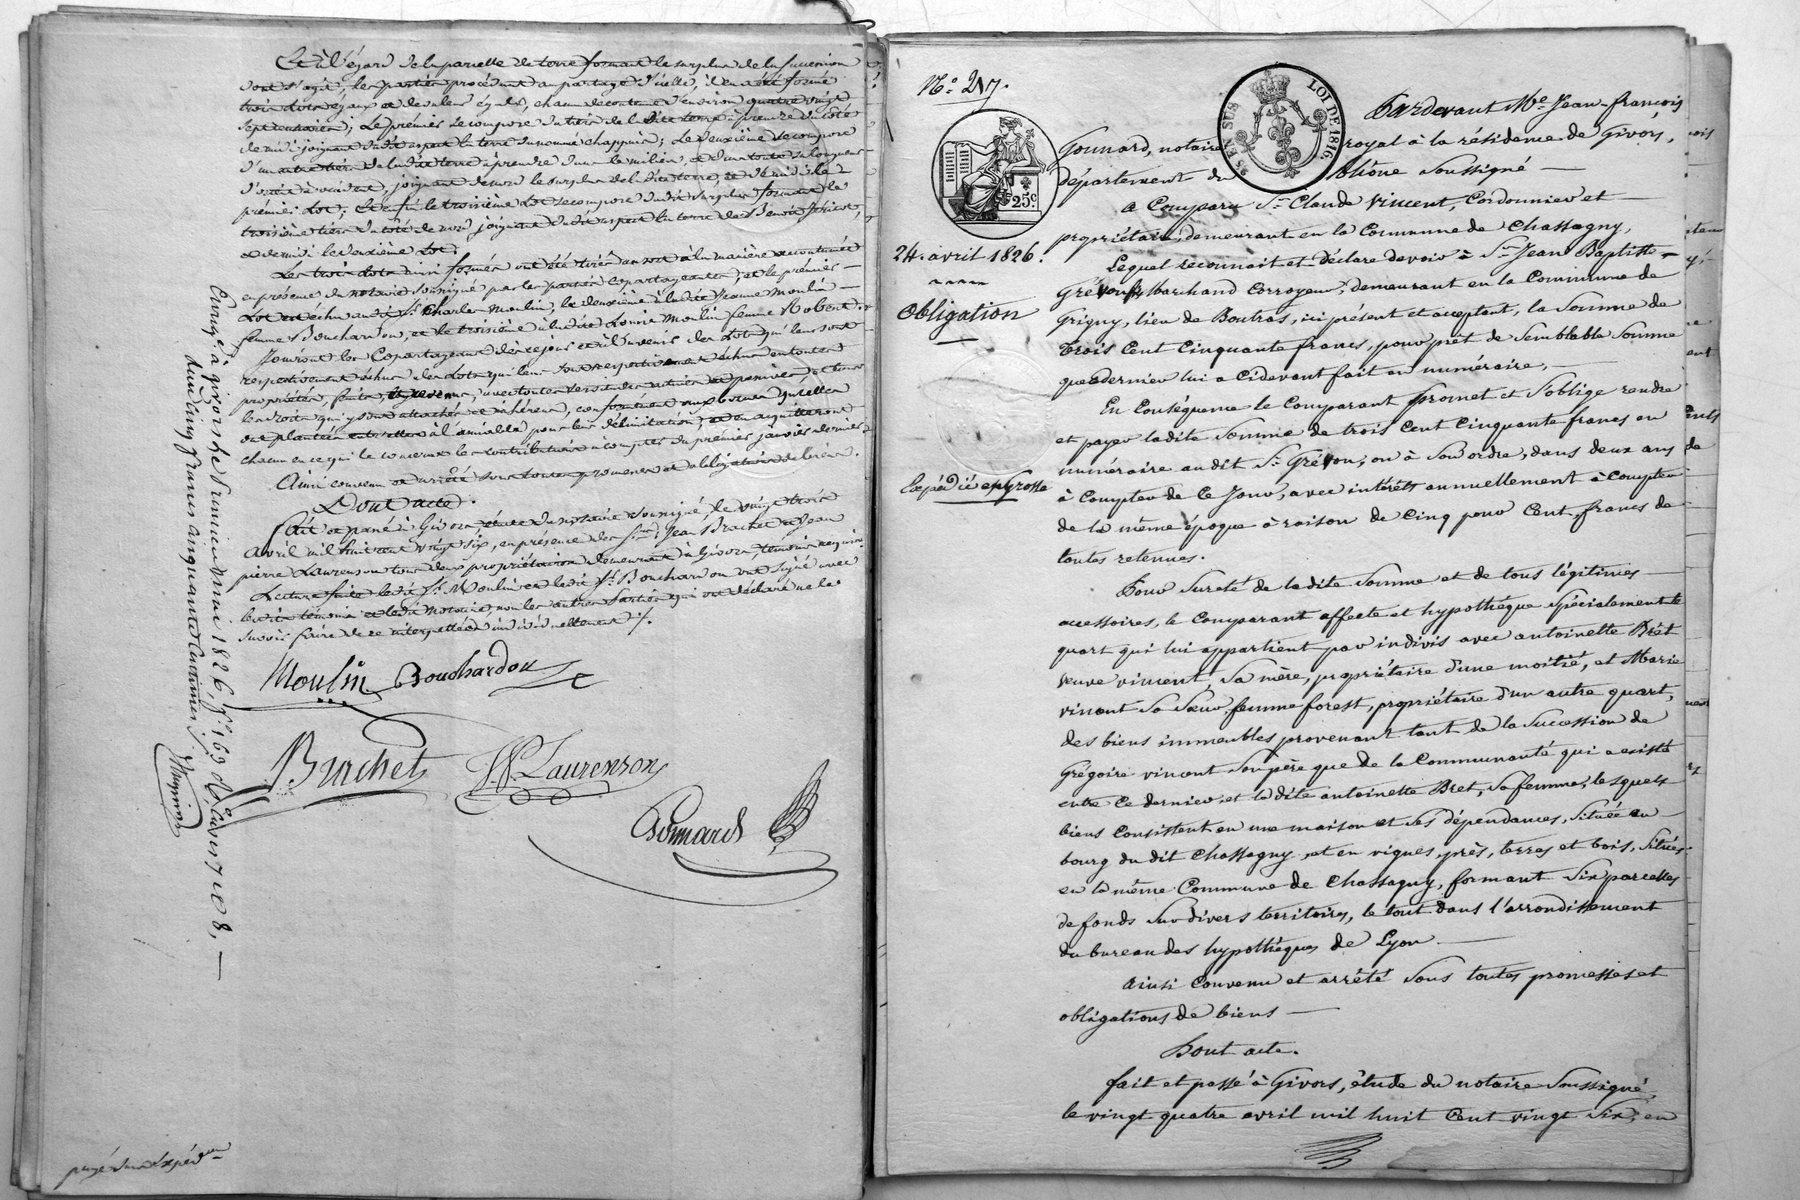 Et à l'égard de la parcelle de terre formant le surplus de la succession
dont s'agit, les parties procédant au partage d'icelle, il en a été formé
trois lots égaux et de valeur égale, chacun de contenue d'environ quatre vingt
; Le premier se compose du tiers de la dite terre à prendre du côté
de midi joignant du dit aspect la terre du nommé chappuis; Le deuxième se compose
d'un autre tiers de la dite terre à prendre dans le milieu, et dans toute sa longueur
joignant de nord le surplus de la dite terre, et de midi le
premier lot; Et enfin le troisième lot se compose du dit surplus formant le
troisième tiers du côté de nord joignant du dit aspect la terre de Benoit
et de midi le deuxième lot.
Les trois lots ainsi formés ont été tirés au sort à la manière accoutumée
en présence du notaire soussigné par les parties copartageantes; et le premier
Lot est échu audit Sr. Charles Moulin, le deuxième à la dite Jeanne Moulin
femme Bouchardon, et le troisième à la dite Moulin femme Robert.
Jouiront les Copartageans dès ce jour et à l'avenir des Lots qui leur sont
respectivement échus
propriétés, fruits, et revenus, avec toutes
les droits qui y sont attachés et inhérens, conformément aux bornes qu'elles
ont plantées entr'elles à l'amiable pour leur délimitation, et en acquitteront
chacun en ce qui le concerne les contributions à compter du premier janvier dernier
Ainsi convenu et arrêté sous toutes promesses et obligations de biens.
Dont acte.
Fait et passé à Givors étude du notaire soussigné le vingt trois
avril mil huit cent vingt six, en présence des Srs. Jean Brachet et Jean
pierre Laurenson tous deux propriétaires demeurant à Givors, témoins requis.
Lecture faite ledit Sr. Moulin et ledit Sr. Bouchardon ont signé avec
les dits témoins et ledit Notaire, non les autres parties qui ont déclaré ne le
savoir faire de ce interpellées individuellement ./.
Moulin Bouchardon
Brachet J. P. Laurenson
Gounard
Enregé. à givors le premier mai 1826, fo. 169
cinq francs cinquante centimes
N.o 217.
25c
EN SUS
LOI DE 1816.
24. avril 1826.
Obligation
Expédié en grosse
Pardevant Me. Jean-françois
Gounard, notaire royal à la résidence de Givors,
département du Rhône soussigné
a Comparu Sr. Claude Vincent, Cordonnier et
propriétaire, demeurant en la Commune de Chassagny,
Lequel reconnait et déclare devoir à Sr. Jean Baptiste
Grevon, Marchand Corroyeur, demeurant en la Commune de
Grigny, lieu de Boutras, ici présent et acceptant, la Somme de
trois Cent Cinquante francs, pour prêt de Semblable Somme
que ce dernier lui a Cidevant fait en numéraire,
En Conséquence le Comparant promet et S'oblige rendre
et payer ladite Somme de trois Cent Cinquante francs en
numéraire audit Sr. Grevon, ou à Son ordre, dans deux ans
à Compter de Ce Jour, avec intérêts annuellement à Compter
de la même époque à raison de Cinq pour Cent, francs de
toutes retenues.
Pour Sureté de ladite Somme et de tous légitimes
accessoires, le Comparant affecte et hypothèque spécialement le
quart qui lui appartient par indivis avec antoinette Brêt
veuve vincent, Sa mère, propriétaire d'une moitié, et Marie
vincent Sa Sœur, femme forest, propriétaire d'un autre quart,
des biens immeubles provenant tant de la Succession de
Grégoire vincent Son père que de la Communauté qui a existé
entre Ce dernier et ladite antoinette Bret, Sa femme, lesquels
biens Consistent en une maison et Ses dépendances, Située au
bourg du dit Chassagny, et en vignes, prés, terres et bois, Situés
en la même Commune de Chassagny, formant Six parcelles
de fonds Sur divers territoires, le tout dans l'arrondissement
du bureau des hypothèques de Lyon
ainsi Convenu et arrêté Sous toutes promesses et
obligations de biens
Dont acte.
fait et passé à Givors, étude du notaire Soussigné,
le vingt quatre avril mil huit Cent vingt Six, en